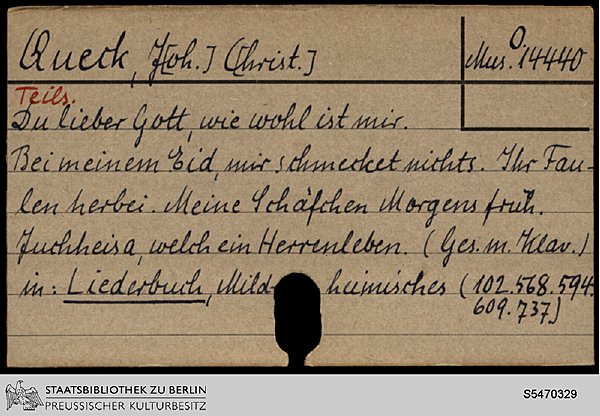 Queck, J[oh.] C[hrist.]
Mus. O. 14440
Teils.
Du lieber Gott, wie wohl ist mir.
Bei meinem Eid, mir schmecket nichts. Ihr Fau-
len herbei. Meine Schäfchen Morgens früh.
Juchheisa, welch ein Herrenleben. (Ges. m. Klav.)
in: Liederbuch, Mildheimisches (102.568.594.
609.737)
STAATSBIBLIOTHEK ZU BERLIN
PREUSSISCHER KULTURBESITZ
S5470329